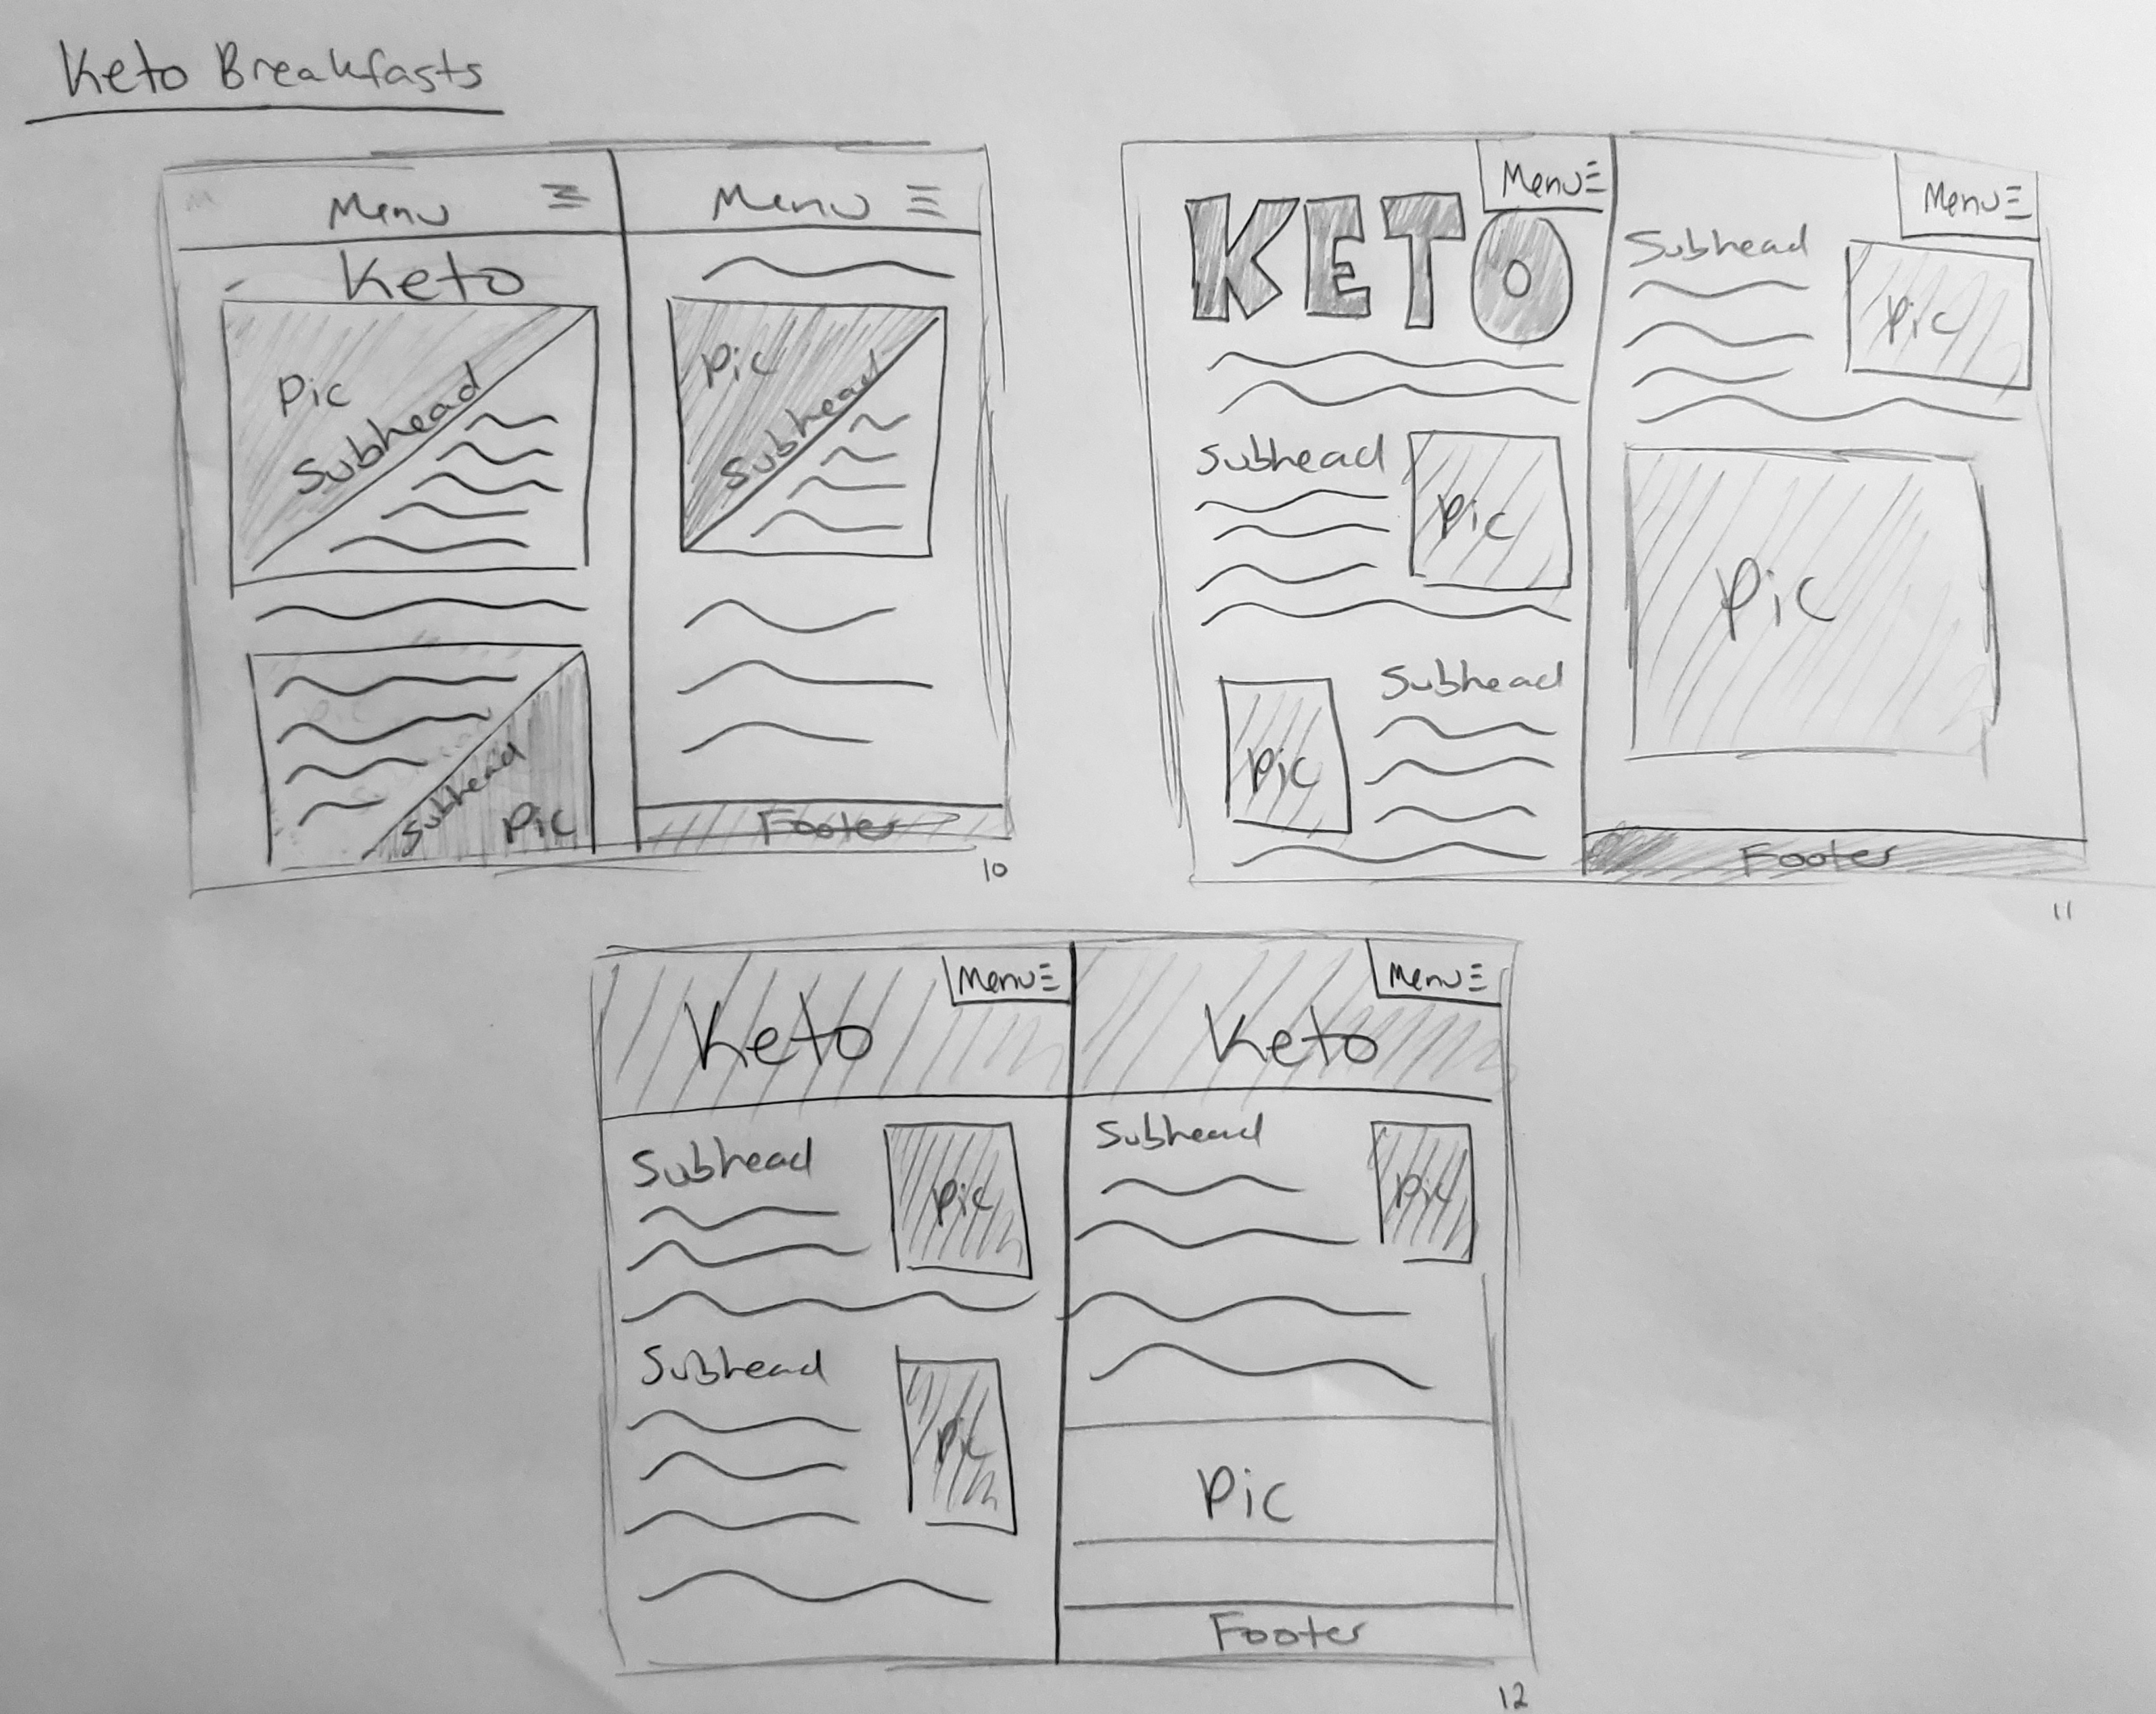 Keto Breakfasts
Menu
Keto
Pic
Subhead
Subhead
Pic
Menu
Pic
Subhead
Footer
10
Menu
KETO
Subhead
Pic
Subhead
Pic
Menu
Subhead
Pic
Pic
Footer
11
Menu
Keto
Subhead
Pic
Subhead
Pic
Menu
Keto
Subhead
Pic
Pic
Footer
12